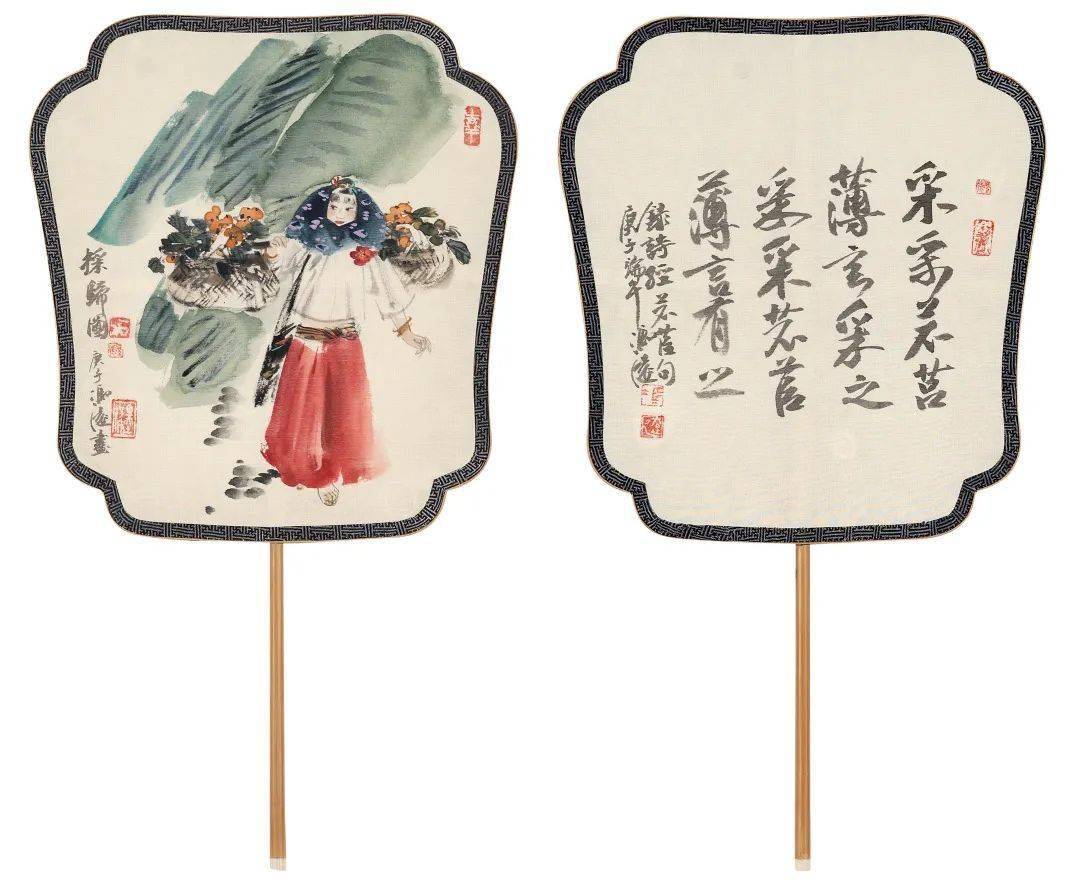 採歸圖
庚子馮遠畫
采采芣莒
薄言采之
采采芣苢
薄言有之
錄詩經芣苢句
庚子端午馮遠